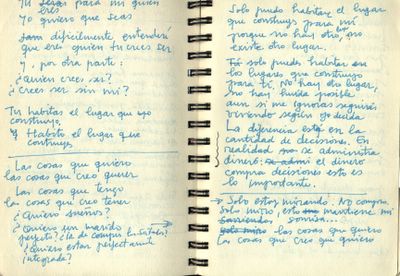 Tu serás para mi quien
eres
Yo quiero que seas
dificilmente entenderá
que eres quien tu crees ser
y, por otra parte:
¿Quien crees ser?
¿Crees ser sin mi?
Tu habitas el lugar que yo
construyo,
y Habito el lugar que
construyes
Las cosas que quiero
las cosas que creo querer
Las cosas que tengo
las cosas que creo tener
¿Quiero sueños?
¿Quiero un marido
perfecto?
¿Quiero estar perfectamente
integrada?
Solo puedo habitar el lugar
que construyo para mi
porque no hay otro, no
existe otro lugar.
Tú solo puedes habitar en
los lugares que construyo
para ti, No hay otro lugar,
no hay huida posible
aun si me ignoras seguirás
viviendo según yo decida
La diferencia está en la
cantidad de decisiones. En
realidad no se administra
dinero: el dinero
compra decisiones esto es
lo importante.
→ Solo estoy mirando. No compro.
Solo miro, esto mantiene mi
sonrisa...
solo miro las cosas que quiero
las cosas que creo que quiero